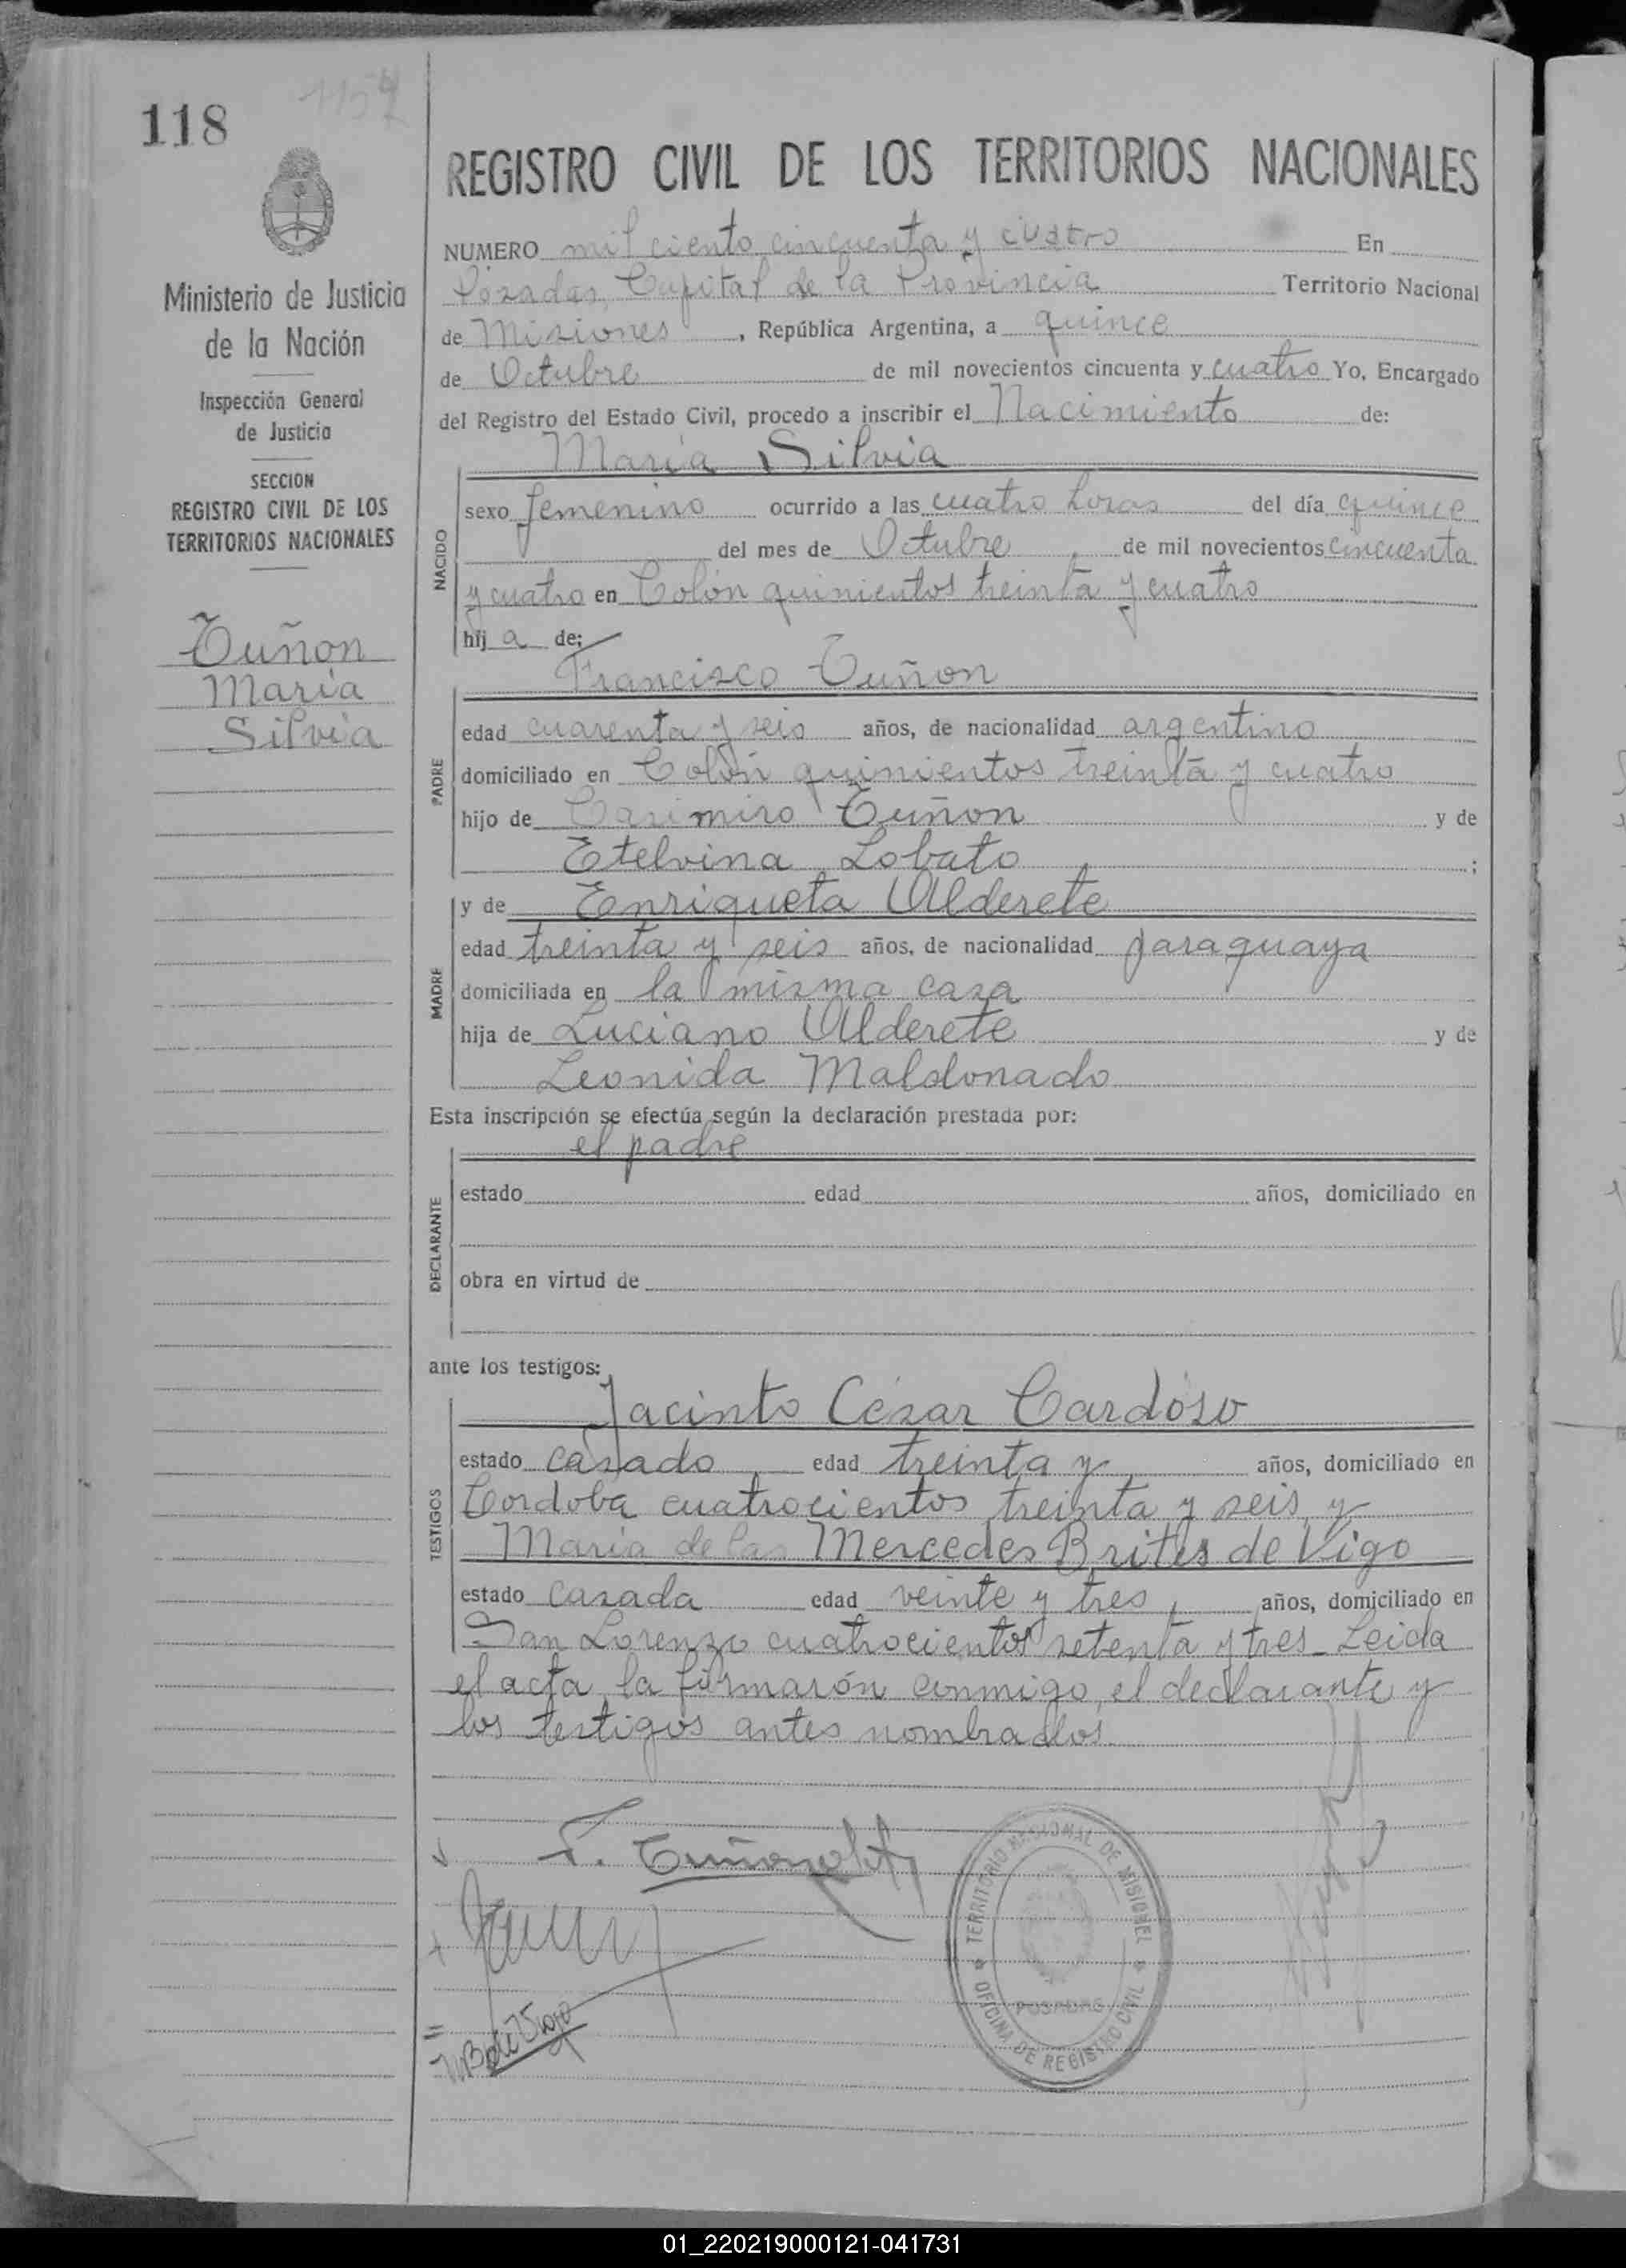 118
1154
REGISTRO CIVIL DE LOS TERRITORIOS NACIONALES
Ministerio de Justicia
de la Nación
Inspección General
de Justicia
SECCION
REGISTRO CIVIL DE LOS
TERRITORIOS NACIONALES
Tuñon
María
Silvia
NUMERO mil ciento cincuenta y cuatro En
Posadas, Capital de la Provincia Territorio Nacional
de Misiones, República Argentina, a quince
de Octubre de mil novecientos cincuenta y cuatro Yo, Encargado
del Registro del Estado Civil, procedo a inscribir el Nacimiento de:
María Silvia
NACIDO
sexo femenino ocurrido a las cuatro horas del día quince
del mes de Octubre de mil novecientos cincuenta
y cuatro en Colón quinientos treinta y cuatro
hija de:
Francisco Tuñon
PADRE
edad cuarenta y seis años, de nacionalidad argentino
domiciliado en Colón quinientos treinta y cuatro
hijo de Casimiro Tuñon y de
Etelvina Lobato ;
MADRE
y de Enriqueta Alderete
edad treinta y seis años, de nacionalidad paraguaya
domiciliada en la misma casa
hija de Luciano Alderete y de
Leonida Maldonado
Esta inscripción se efectúa según la declaración prestada por:
el padre
DECLARANTE
estado edad años, domiciliado en
obra en virtud de
ante los testigos:
Jacinto César Cardóso
TESTIGOS
estado casado edad treinta y años, domiciliado en
Cordoba cuatrocientos treinta y seis y
María de las Mercedes Brites de Vigo
estado casada edad veinte y tres, años, domiciliado en
San Lorenzo cuatrocientos setenta y tres_ Leida
el acta, la firmarón conmigo, el declarante y
los testigos antes nombrados
F. Tuñon
TERRITORIO NACIONAL DE MISIONES
POSADAS
OFICINA DE REGISTRO CIVIL
MB de Vigo
01_220219000121-041731